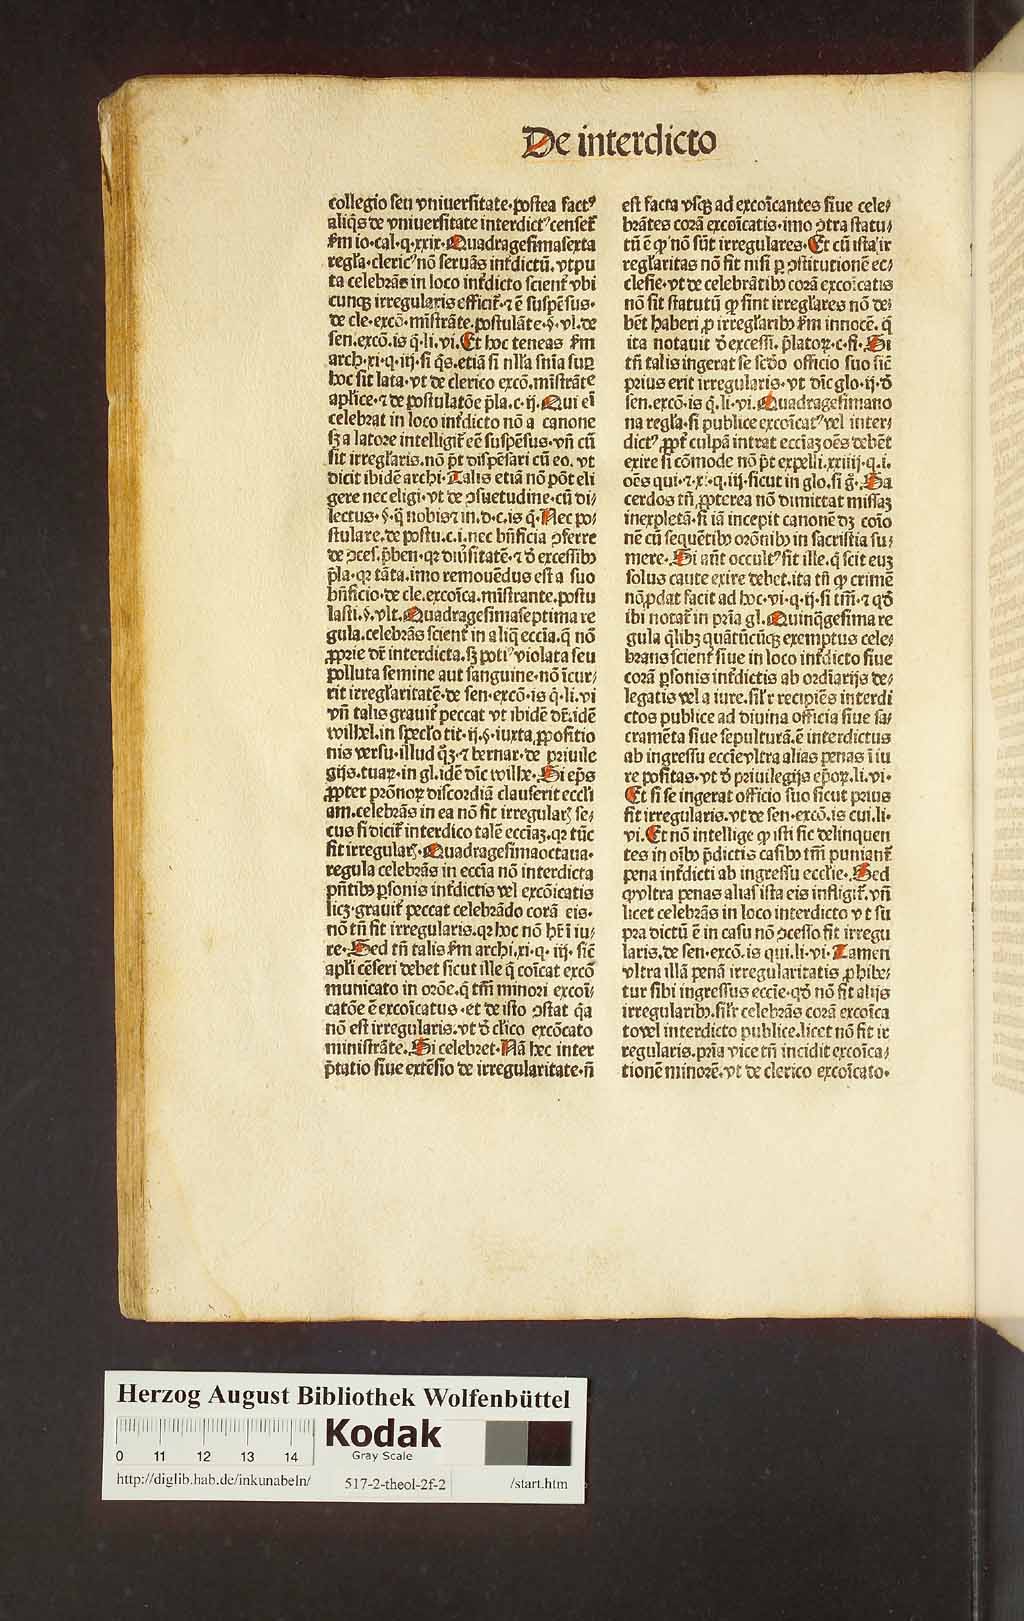 De interdicto
collegio seu vniuersitate·postea factꝰ
aliqͥs de vniuersitate interdictꝰ censet᷑
ẜm io·cal·q·xxix·Quadragesimasexta
regl̓a·clericꝰ nō seruās int̓dictū·vtpu
ta celebrās in loco int̓dicto scient̓ vbi
cunqꝫ irregularis efficit᷑·⁊ ē suspēsus·
de cle·excō·mīstrāte·postulāte·§·vl·de
sen·excō·is q̄·li·vi·Et hoc teneas ẜm
arch·xi·q·iij·si q̄s·etiā si nl̓la snīa suꝑ
hoc sit lata·vt de clerico excō·mīstrāte
apl̓ice·⁊ de postulatōe p̄la·c·ij·Qui eī
celebrat in loco int̓dicto nō a canone
sꝫ a latore intelligit᷑ eē suspēsus·vn̄ cū
sit irregl̓aris·nō p̄t dispēsari cū eo· vt
dicit ibidē archi·Talis etiā nō pōt eli
gere nec eligi·vt de ɔsuetudine·cū di⸗
lectus·§·q̄ nobis⁊ in·d·c·is q̄·Nec po⸗
stulare·de postu·c·i·nec bn̄ficia ɔferre
de ɔces·p̄ben·qꝛ diūsitatē·⁊ d̓ excessibꝰ
p̄la·qꝛ tāta·imo remouēdus est a suo
bn̄ficio·de cle·excoīca·mīstrante·postu
lasti·§·vlt·Quadragesimaseptima re
gula·celebrās scient̓ in aliq̄ eccīa·q̄ nō
ꝓprie dr̄ interdicta·sꝫ potiꝰ violata seu
polluta semine aut sanguine·nō īcur⸗
rit irregl̓aritatē·de sen·excō·is q̄·li·vi
vn̄ talis grauit̓ peccat vt ibidē dr̄·idē
wilhel·in spec̓lo tit·ij·§·iuxta ꝓpositio
nis versu·illud qͦꝫ·⁊ bernar·de priuile
gijs·tuaꝝ·in gl·idē dic̄ wilhe·Si ep̄s
ꝓpter p̄ronoꝝ discordiā clauserit eccl̓i
am·celebrās in ea nō fit irregularꝭ se⸗
cus si dicit̓ interdico talē eccīaꝫ·qꝛ tūc
fit irregularꝭ·Quadragesimaoctaua·
regula celebrās in eccīa nō interdicta
pn̄tibꝰ ꝑsonis int̓dictis vel excōicatis
licꝫ·grauit̓ peccat celebrādo corā eis·
nō tn̄ fit irregularis·qꝛ hoc nō hr̄ ī iu⸗
re·Sed tn̄ talis ẜm archi·xi·q· iij· sic̄
apl̓i cēseri debet sicut ille q̄ coīcat excō
municato in orōe·q̄ tm̄ minori excoī⸗
catōe ē excoīcatus·et de isto ɔstat q̄a
nō est irregularis·vt d̓ cl̓ico excōcato
ministrāte·Si celebret·Nā hec inter
p̄tatio siue extēsio de irregularitate·n̄
est facta vsqꝫ ad excoīcantes siue cele⸗
brātes corā excoīcatis·imo ɔtra statu⸗
tū ē ꝙ nō sūt irregulares·Et cū ista ir
regl̓aritas nō sit nisi ꝑ ɔstitutionē ec⸗
clesie·vt de celebrātibꝰ corā excoīcatis
nō sit statutū ꝙ sint irregl̓ares nō de⸗
bēt haberi ꝓ irregl̓aribꝰ ẜm innocē· q̄
ita notauit d̓ excessi·p̄latoꝝ·c·fi·Si
tn̄ talis ingerat se scd̓o officio suo sic̄
prius erit irregularis·vt dic̄ glo·ij·d̓
sen·excō·is q̄·li·vi·Quadragesimano
na regl̓a·si publice excoīcatꝰ vel inter⸗
dictꝰ ꝓpt̓ culpā intrat eccīaꝫ oēs debēt
exire si cōmode nō p̄t expelli·xxiiij·q·i·
oēs qui·⁊ x·q·iij·sicut in glo·si g̓·Sa
cerdos tn̄ ꝓpterea nō dimittat missaꝫ
inexpletā·si iā incepit canonē dꝫ coīo
nē cū sequētibꝰ orōnibꝰ in sacristia su⸗
mere·Si aūt occultꝰ sit ille·q̄ scit euꝫ
solus caute exire debet·ita tn̄ ꝙ crimē
nō ꝓdat facit ad hoc·vi·q·ij·si tm̄·⁊ qd̓
ibi notat᷑ in prīa gl·Quinq̄gesima re
gula q̄libꝫ quātūcūqꝫ exemptus cele⸗
brans scient̓ siue in loco int̓dicto siue
corā ꝑsonis int̓dictis ab ordīarijs de⸗
legatis vel a iure·sil̓r recipiēs interdi
ctos publice ad diuina officia siue sa⸗
cramēta siue sepulturā·ē interdictus
ab ingressu eccīe vltra alias penas ī iu
re positas·vt d̓ priuilegijs ep̄oꝝ·li·vi·
Et si se ingerat officio suo sicut prius
fit irregularis·vt de sen·excō·is cui·li·
vi·Et nō intellige ꝙ isti sic delinquen
tes in oībꝰ p̄dictis casibꝰ tm̄ puniant᷑
pena int̓dicti ab ingressu eccl̓ie·Sed
ꝙ vltra penas alias ista eis infligit᷑·vn̄
licet celebrās in loco interdicto vt su
pra dictū ē in casu nō ɔcesso fit irregu
laris·de sen·excō·is qui·li·vi·Tamen
vltra illā penā irregularitatis ꝓhibe⸗
tur sibi ingressus eccīe·qd̓ nō fit alijs
irregularibꝰ·sil̓r celebrās corā excoīca
to vel interdicto publice·licet nō fit ir
regularis·prīa vice tn̄ incidit excoīca⸗
tionē minorē·vt de clerico excoīcato·
Herzog August Bibliothek Wolfenbüttel
0 11 12 13 14
Kodak
Gray Scale
http://diglib.hab.de/inkunabeln/ 517-2-theol-2f-2 /start.htm